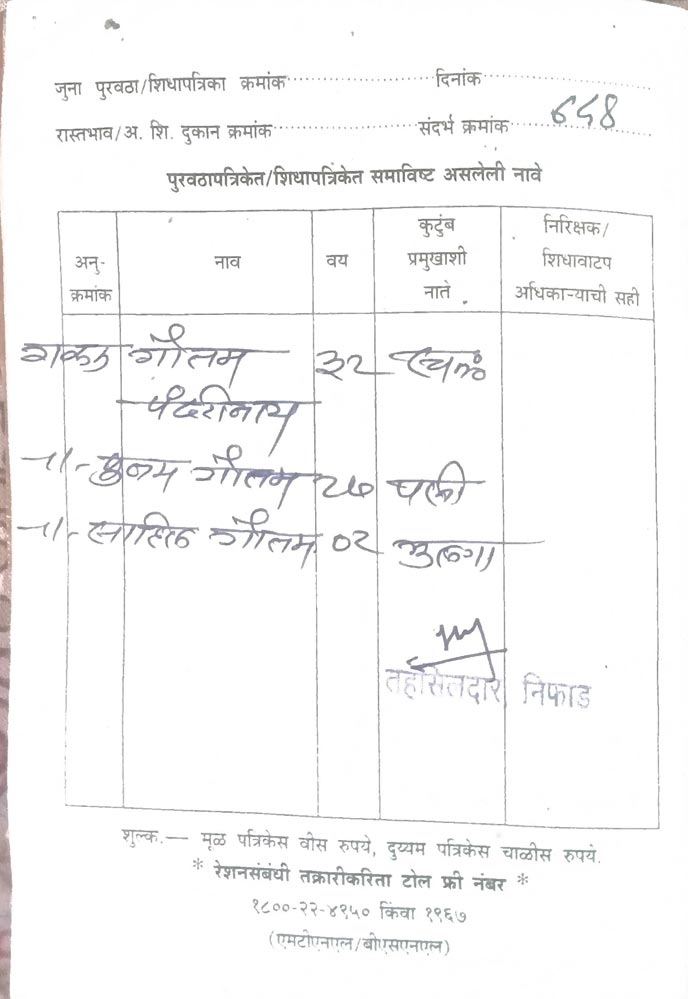 जुना पुरवठा/शिधापत्रिका क्रमांक.................... दिनांक....................
रास्तभाव/अ. शि. दुकान क्रमांक.................... संदर्भ क्रमांक....................
पुरवठापत्रिकेत/शिधापत्रिकेत समाविष्ट असलेली नावे
अनु-क्रमांक नाव वय कुटुंब प्रमुखाशी नाते निरिक्षक/शिधावाटप अधिकाऱ्याची सही
गौतम ३२ स्वतः
पंढरीनाथ
-॥- पुनम गौतम २७ पत्नी
-॥- साहिल गौतम ०२ मुलगा
तहसिलदार, निफाड
शुल्क.— मूळ पत्रिकेस वीस रुपये, दुय्यम पत्रिकेस चाळीस रुपये.
* रेशनसंबंधी तक्रारीकरिता टोल फ्री नंबर *
१८००-२२-४९५० किंवा १९६७
(एमटीएनएल/बीएसएनएल)